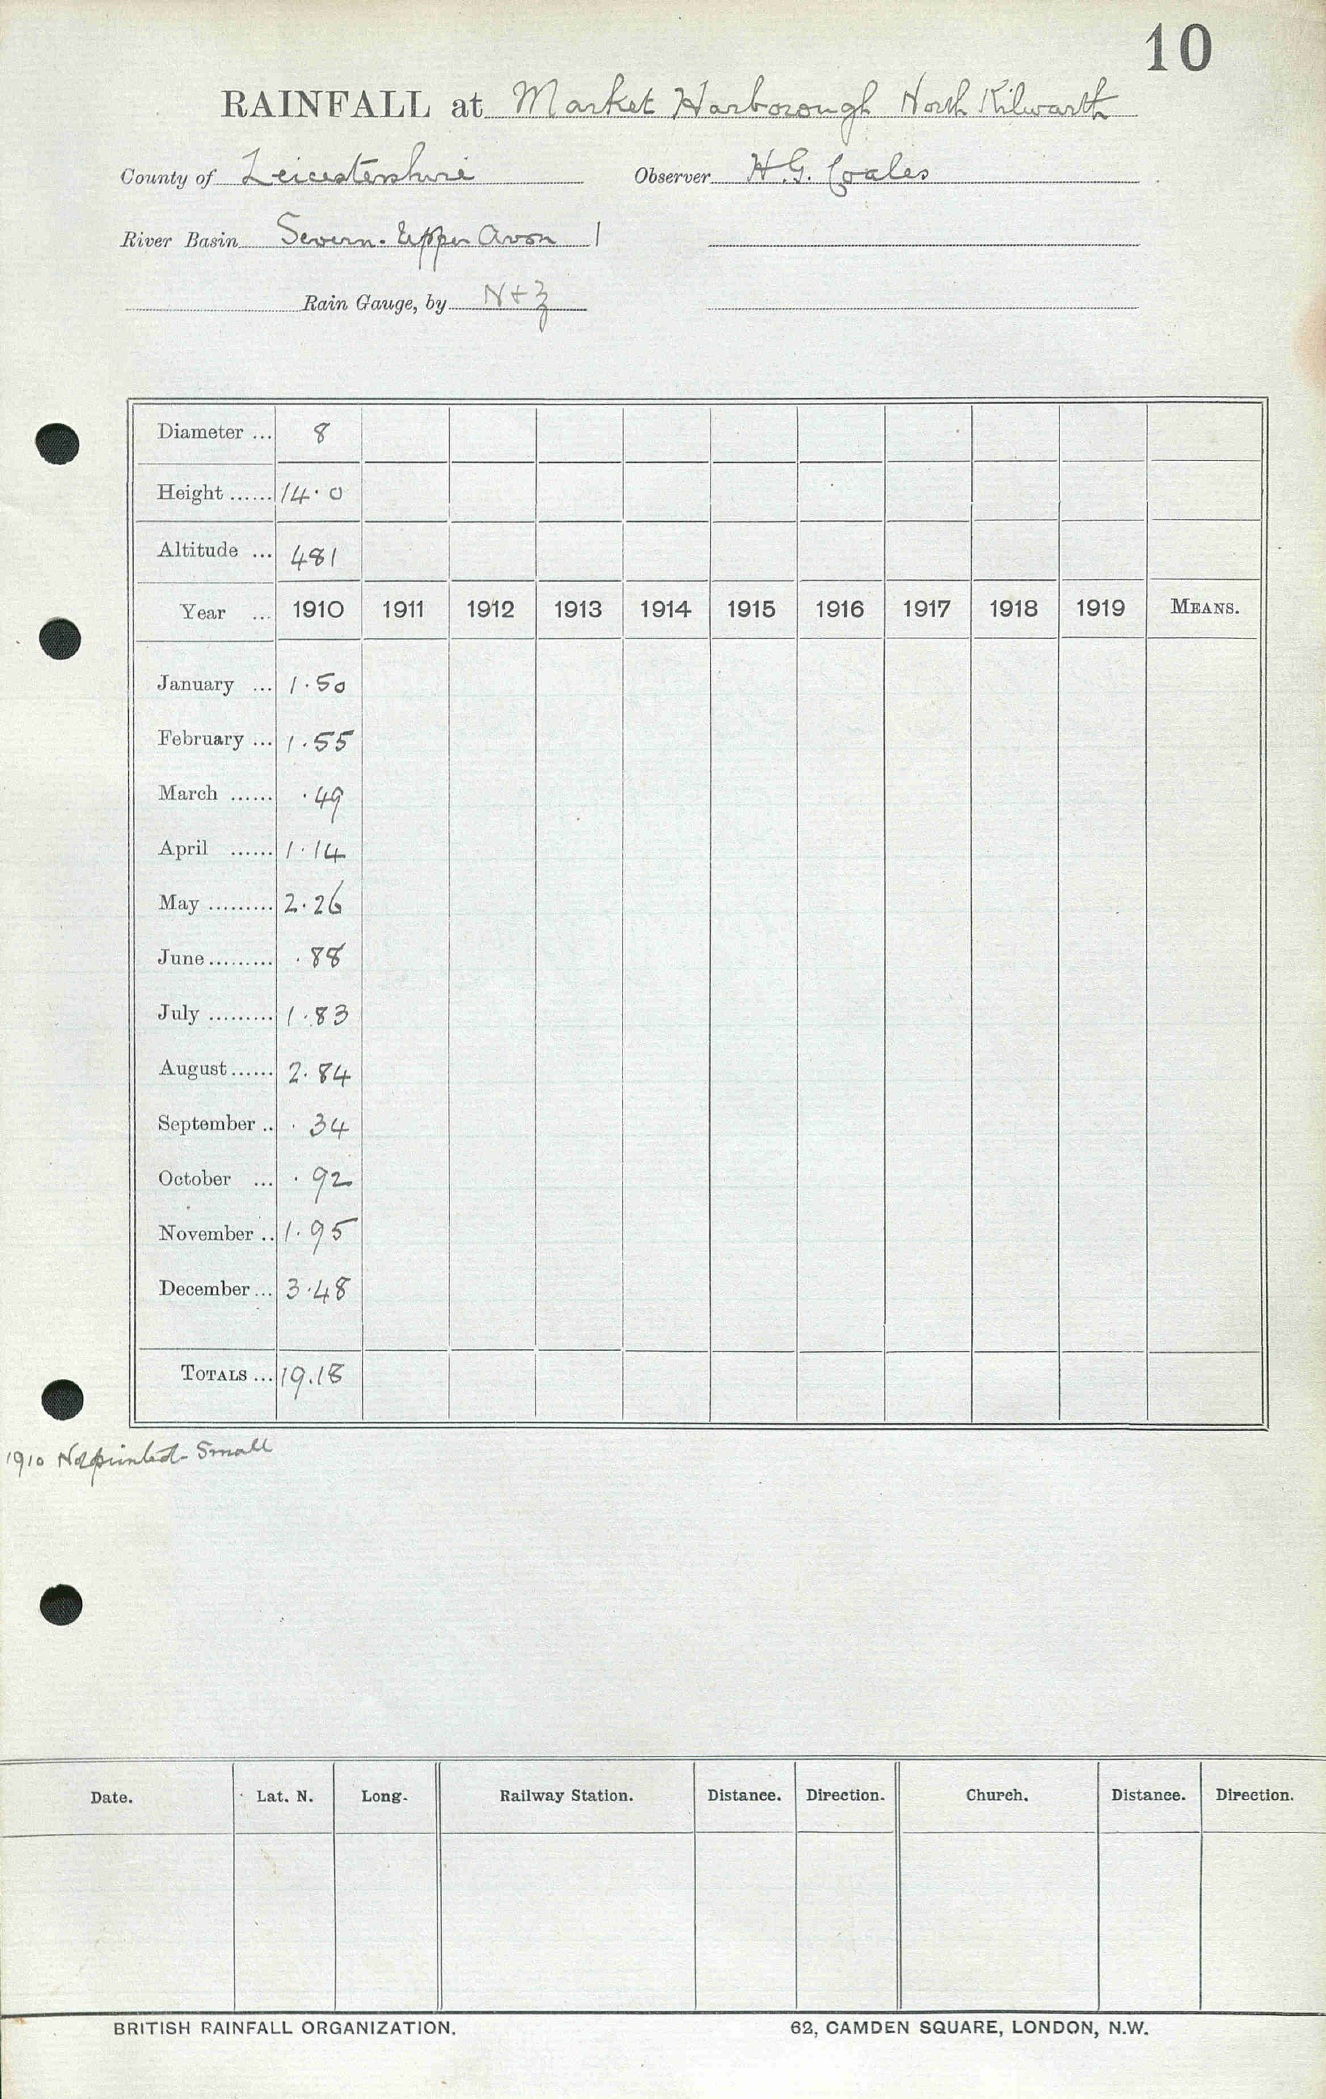 10
RAINFALL at Market Harborough North Kilworth
County of Leicestershire Observer H.G. Coales
River Basin Severn. Upper Avon 1
Rain Gauge, by N+Z
Diameter ... 8
Height ...... 14.0
Altitude ... 481
Year ... 1910 1911 1912 1913 1914 1915 1916 1917 1918 1919 MEANS.
January ... 1.50
February ... 1.55
March ...... .49
April ...... 1.14
May ......... 2.26
June ......... .88
July ......... 1.83
August ...... 2.84
September .. .34
October ... .92
November .. 1.95
December ... 3.48
TOTALS ... 19.18
1910 Not printed - Small
Date. Lat. N. Long. Railway Station. Distance. Direction. Church. Distance. Direction.
BRITISH RAINFALL ORGANIZATION. 62, CAMDEN SQUARE, LONDON, N.W.